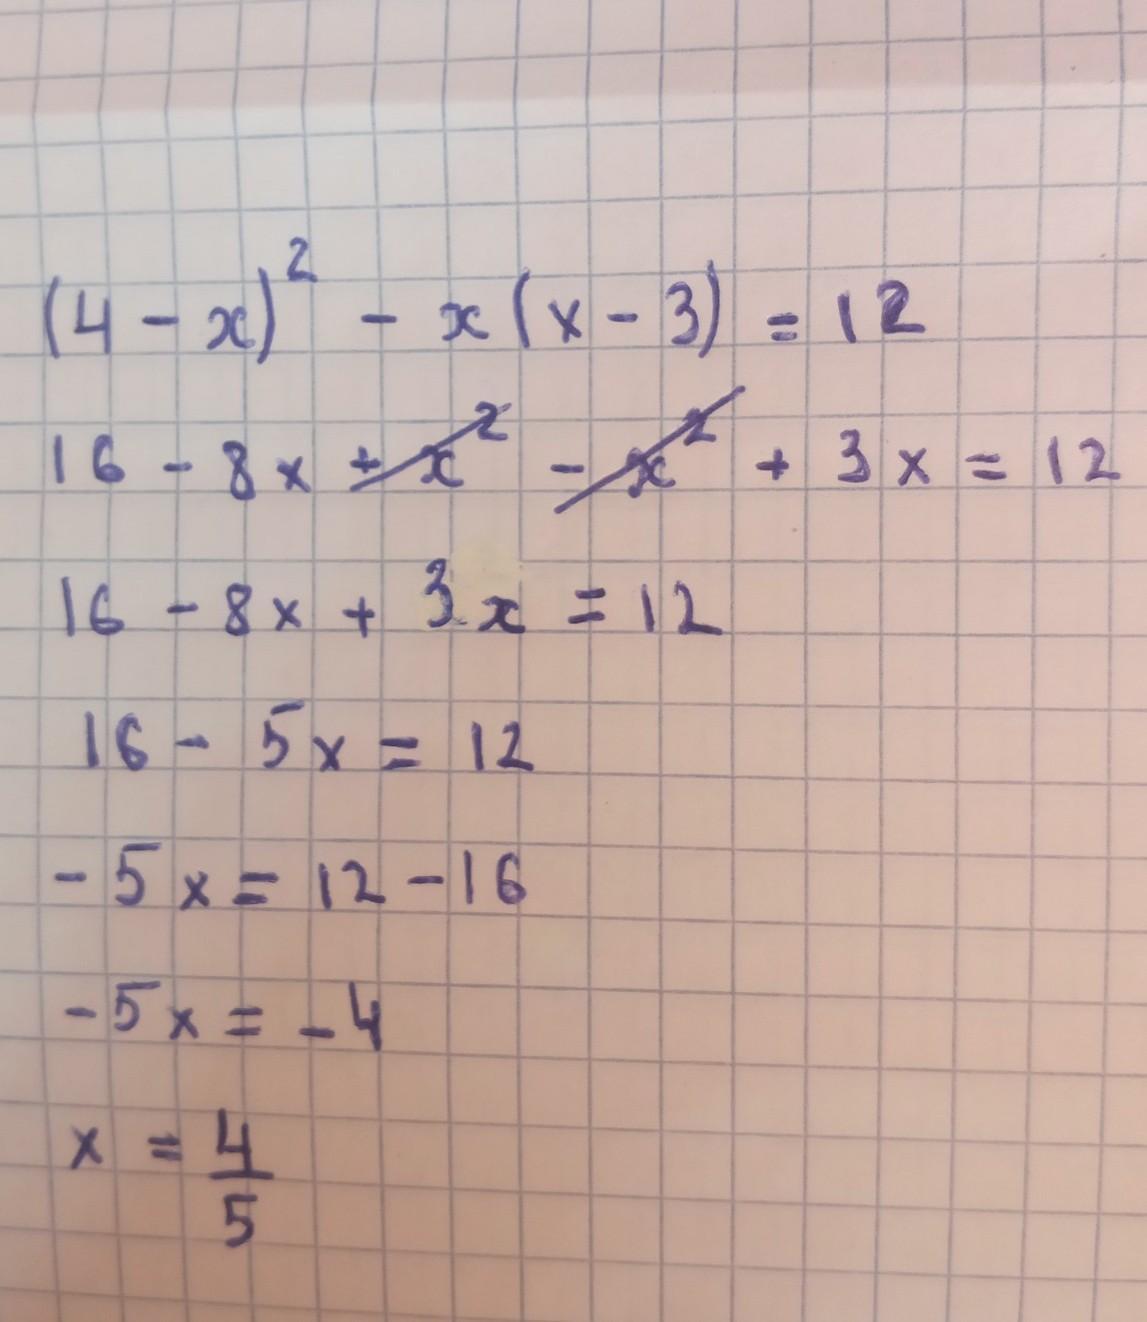 (4 - x)² - x(x - 3) = 12
16 - 8x + x² - x² + 3x = 12
16 - 8x + 3x = 12
16 - 5x = 12
- 5x = 12 - 16
- 5x = - 4
x = 4/5